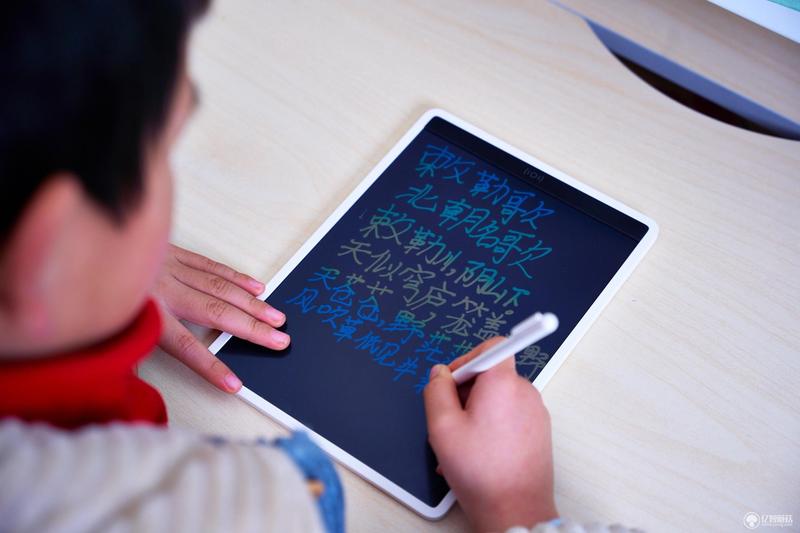 敕勒歌
北朝名歌
敕勒川,阴山下
天似穹庐笼
盖 野
天苍苍,野茫
风吹草低见牛
亿智蘑菇